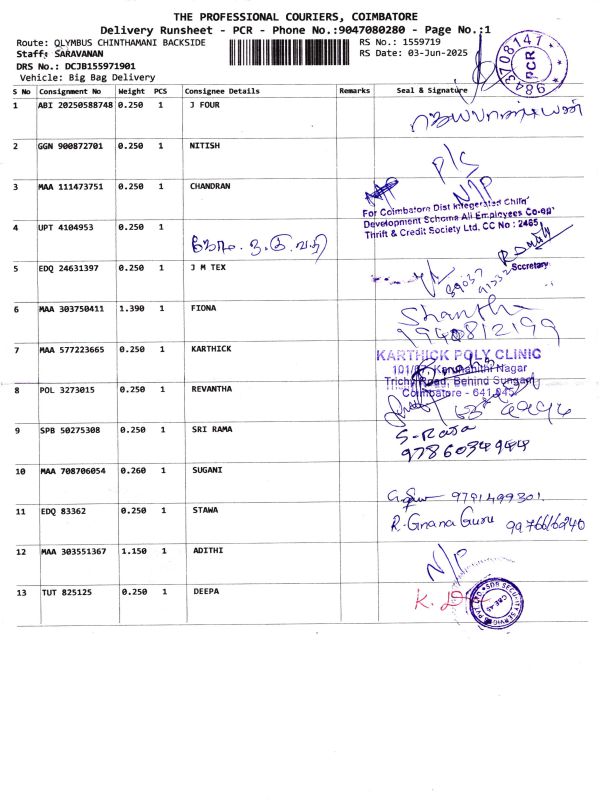 THE PROFESSIONAL COURIERS, COIMBATORE
Delivery Runsheet - PCR - Phone No.:9047080280 - Page No.:1
Route: QLYMBUS CHINTHAMANI BACKSIDE
RS No.: 1559719
Staff: SARAVANAN
RS Date: 03-Jun-2025
DRS No.: DCJB155971901
Vehicle: Big Bag Delivery
9843708147
PCR
S No Consignment No Weight PCS Consignee Details Remarks Seal & Signature
1 ABI 20250588748 0.250 1 J FOUR
2 GGN 900872701 0.250 1 NITISH P/S
3 MAA 111473751 0.250 1 CHANDRAN N/P
For Coimbatore Dist Integerated Child
Development Scheme All Employees Co-op
Thrift & Credit Society Ltd, CC No : 2465
4 UPT 4104953 0.250 1
Secretary
5 EDQ 24631397 0.250 1 J M TEX
6 MAA 303750411 1.390 1 FIONA Shanth
1940812199
7 MAA 577223665 0.250 1 KARTHICK
KARTHICK POLY CLINIC
101/67, Karunanithi Nagar
Trichy Road, Behind Sungam
Coimbatore - 641 045
8 POL 3273015 0.250 1 REVANTHA
9 SPB 50275308 0.250 1 SRI RAMA S-Raja
9786034944
10 MAA 708706054 0.260 1 SUGANI 9791499301
11 EDQ 83362 0.250 1 STAWA R. Gnana Guru 9976616940
12 MAA 303551367 1.150 1 ADITHI N/P
13 TUT 825125 0.250 1 DEEPA K. D